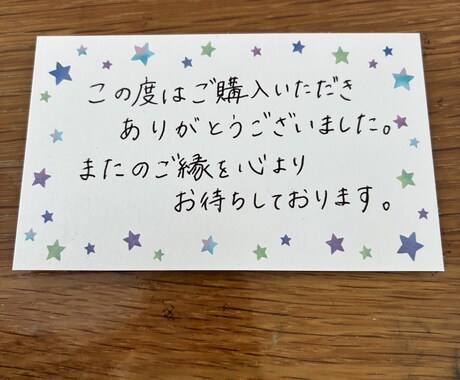 この度はご購入いただき
ありがとうございました。
またのご縁を心より
お待ちしております。